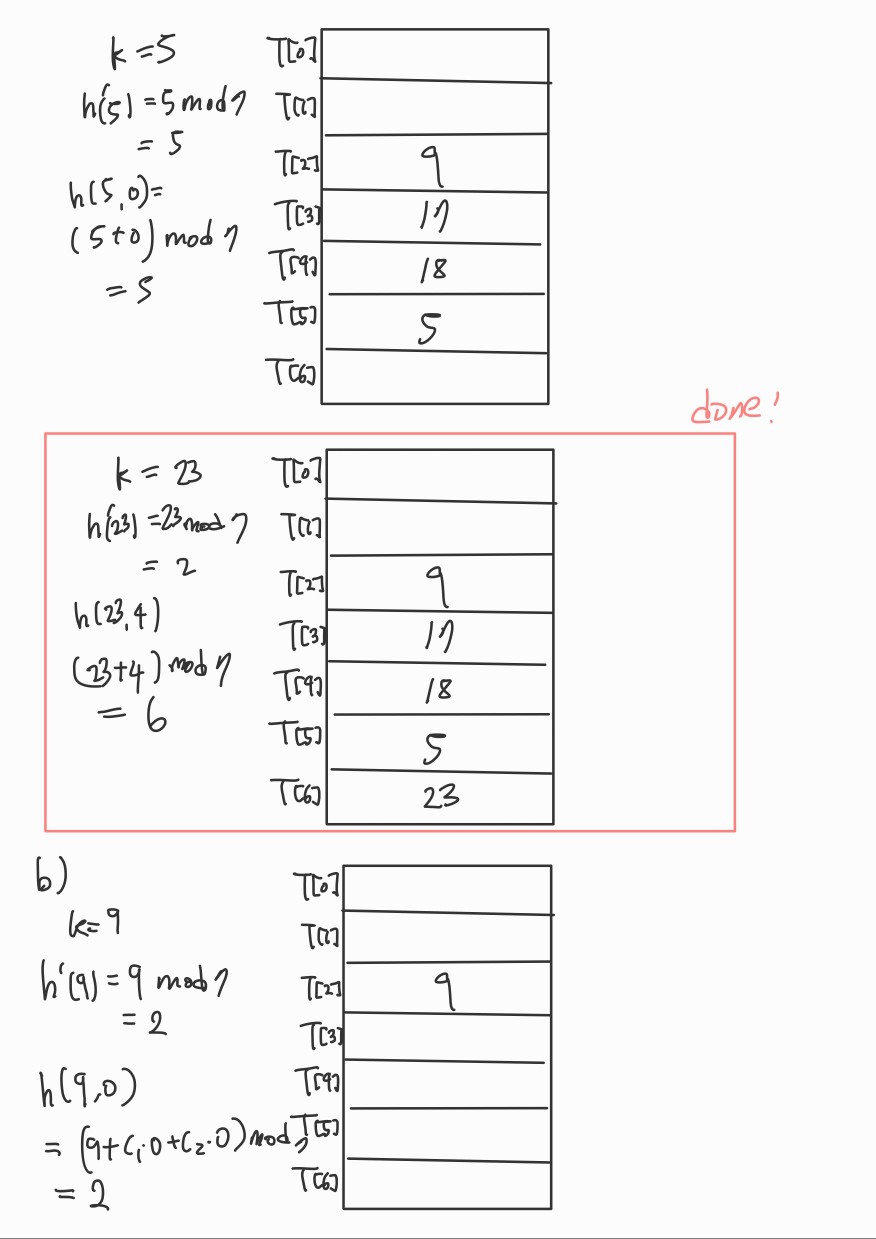 k = 5
h'(5) = 5 mod 7
= 5
h(5,0) =
(5+0) mod 7
= 5
T[0]
T[1]
T[2] 9
T[3] 17
T[4] 18
T[5] 5
T[6]
done!
k = 23
h'(23) = 23 mod 7
= 2
h(23,4)
(23+4) mod 7
= 6
T[0]
T[1]
T[2] 9
T[3] 17
T[4] 18
T[5] 5
T[6] 23
b)
k=9
h'(9) = 9 mod 7
= 2
h(9,0)
= (9+C₁·0+C₂·0) mod 7
= 2
T[0]
T[1]
T[2] 9
T[3]
T[4]
T[5]
T[6]